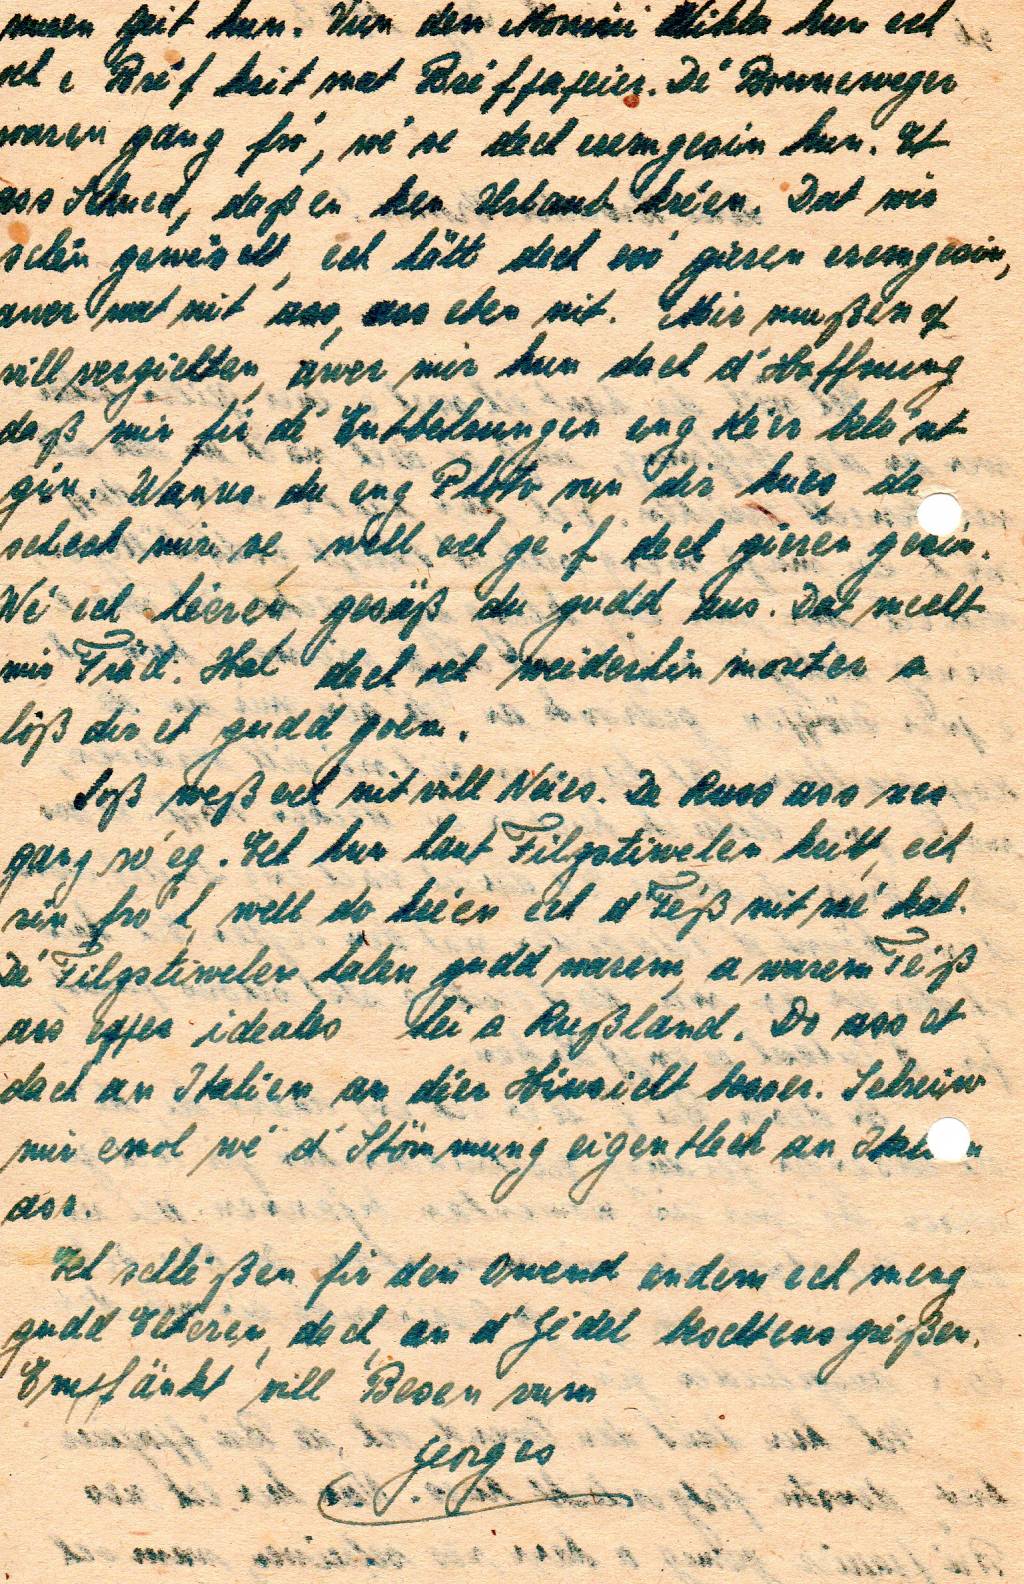 muren Zeit hun. Vun den Nonini Nikla hun ech
och e Bréf krit mat Bréfpapeier. Dé Bonneweger
waren gang fró, wé se dech eremgesin hun. Et
ass Schued, daß en ken Urlaub kréen. Dat wir
schén gewiescht, ech hätt dech esó gieren eremgesin,
awer wat nit ass, ass eben nit. Mir mußen of
vill verzichten, áwer mir hun dach d'Hoffnung
daß mir fir dé Entbehrungen eng Kéer belónt
gin. Wanns du eng Photo vun dir hues, da
scheck mir se, well ech gé'f dech gieren gesin.
Wé ech héeren gesäß du gudd aus. Dat mecht
mir Fräd. Hal dech och weiderhin monter a
löß dir et gudd goen.
Soß weß ech nit vill Neies. De Russ ass nes
gang ró'eg. Ech hun haut Filzstiwelen kritt, ech
sin fró'h, well do kréen ech d'Féß nit mé kal.
Dé Filzstiwelen halen gudd warem, a warem Féß
ass eppes ideales hei a Rußland. Do ass et
dach an Italien an dier Hinsicht besser. Schreiw
mir emol wé d'Stömmung eigentlech an Italien
ass.
Ech schléßen fir den Owend andem ech meng
gudd Elteren, dech, an d'Gédel beschtens gréßen.
Empfänkt vill Besen vum
Georges